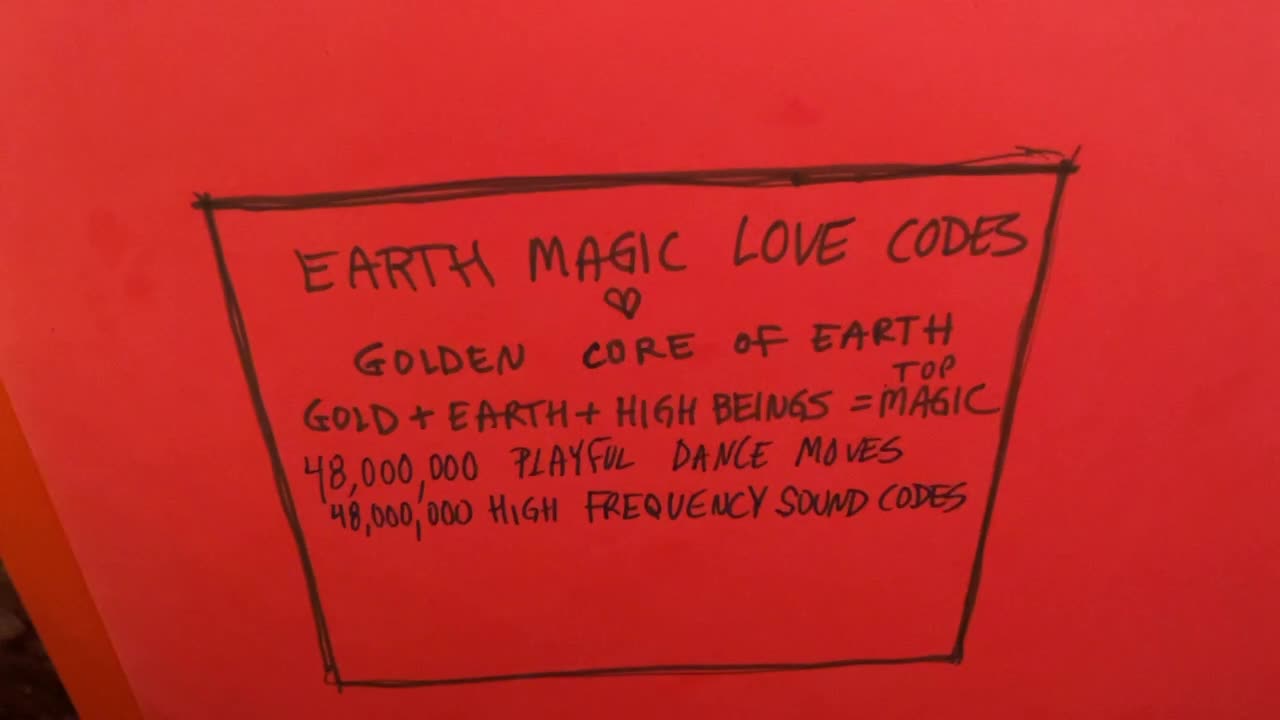 EARTH MAGIC LOVE CODES
GOLDEN CORE OF EARTH
TOP
GOLD + EARTH + HIGH BEINGS = MAGIC
48,000,000 PLAYFUL DANCE MOVES
48,000,000 HIGH FREQUENCY SOUND CODES